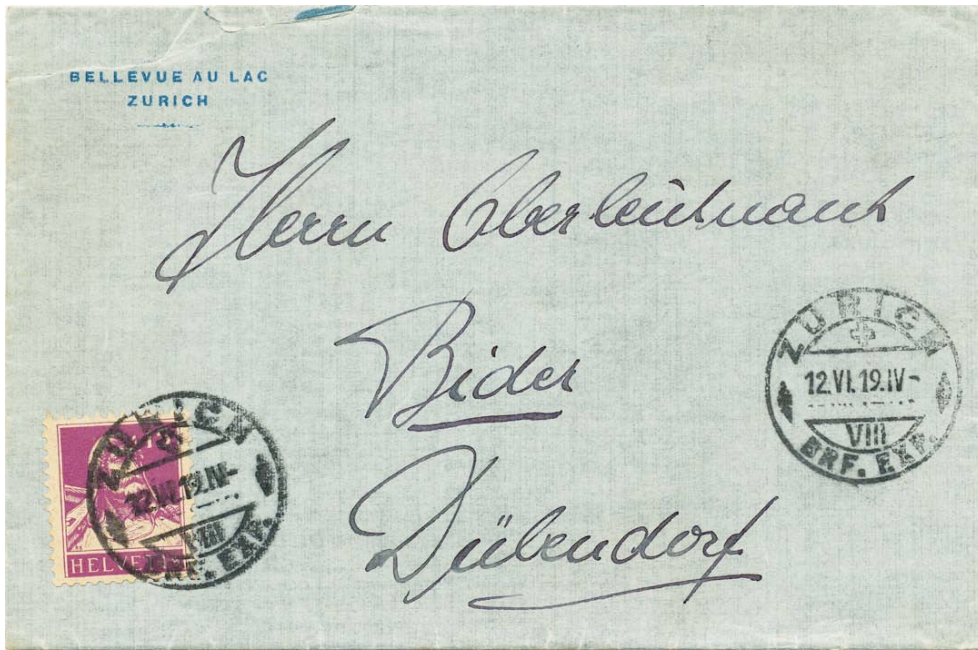 BELLEVUE AU LAC
ZURICH
Herrn Oberleutnant
Bider
Dübendorf
ZÜRICH
12.VI.19.IV-
VIII
BRF. EXP.
ZÜRICH
12.VI.19.IV-
VIII
BRF. EXP.
HELVETIA